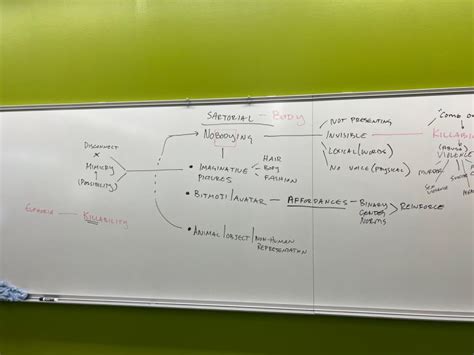 SARTORIAL - BODY
NOBODYING
DISCONNECT
x
MIMICRY
(POSSIBILITY)
EUPHORIA — KILLABILITY
• IMAGINATIVE PICTURES
HAIR
BODY
FASHION
• BITMOJI/AVATAR — AFFORDANCES — BINARY GENDER NORMS > REINFORCE
• ANIMAL/OBJECT/NON-HUMAN REPRESENTATION
NOT PRESENTING
INVISIBLE
LEXICAL (WORDS)
NO VOICE (PHYSICAL)
"COME O
KILLAB
VIOLENCE
MURDER
VIOLENCE